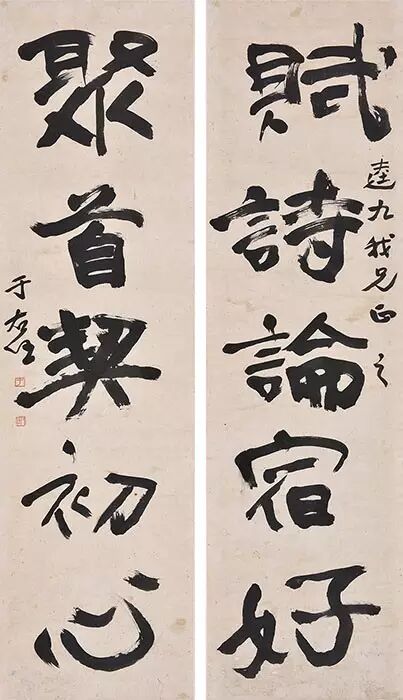 賦詩論宿好
逵九我兄正之
聚首契初心
于右任